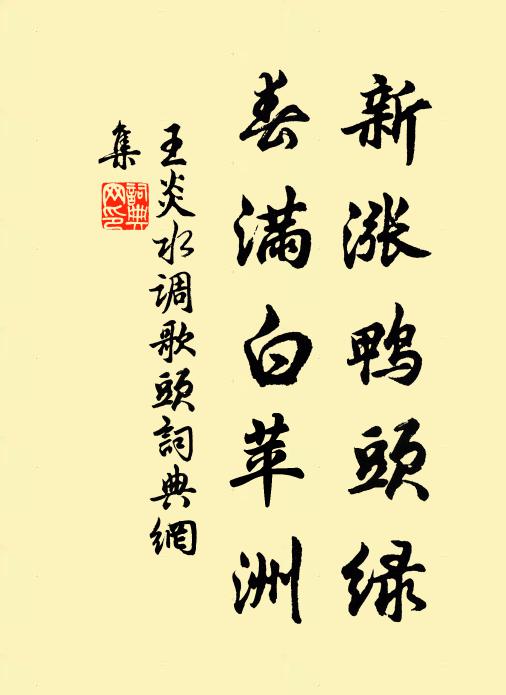 新涨鸭头绿
春满白苹洲
王炎水调歌头詞典網
集
詞典网印